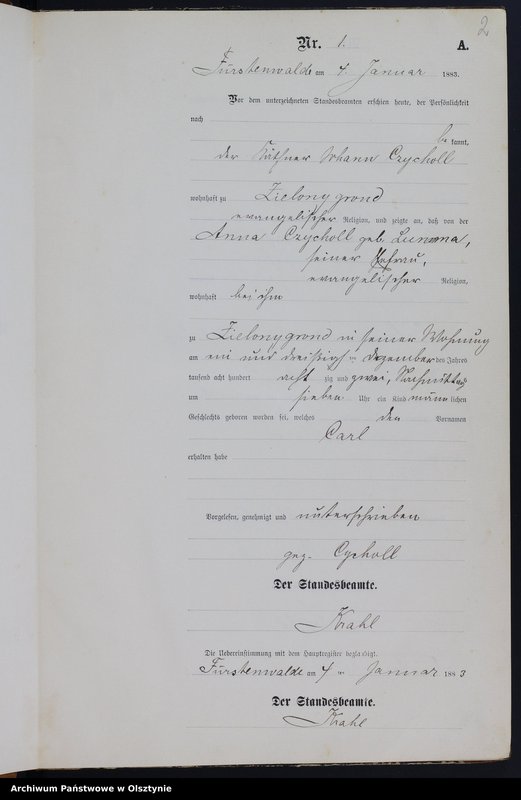 2
Nr. 1. A.
Fürstenwalde am 4. Januar 1883.
Vor dem unterzeichneten Standesbeamten erschien heute, der Persönlichkeit
nach
be kannt,
der Käthner Johann Czycholl
wohnhaft zu Zielonygrond
evangelischer Religion, und zeigte an, daß von der
Anna Czycholl geb.
seiner Ehefrau,
evangelischer Religion,
wohnhaft bei ihm
zu Zielonygrond in seiner Wohnung
am ein und dreißigsten Dezember des Jahres
tausend acht hundert acht zig und zwei, Nachmittags
um sieben Uhr ein Kind männ lichen
Geschlechts geboren worden sei, welches den Vornamen
Carl
erhalten habe
Vorgelesen, genehmigt und unterschrieben
gez. Czcholl
Der Standesbeamte.
Krahl
Die Uebereinstimmung mit dem Hauptregister beglaubigt.
Fürstenwalde am 4 ten Januar 1883
Der Standesbeamte.
Krahl
Archiwum Państwowe w Olsztynie